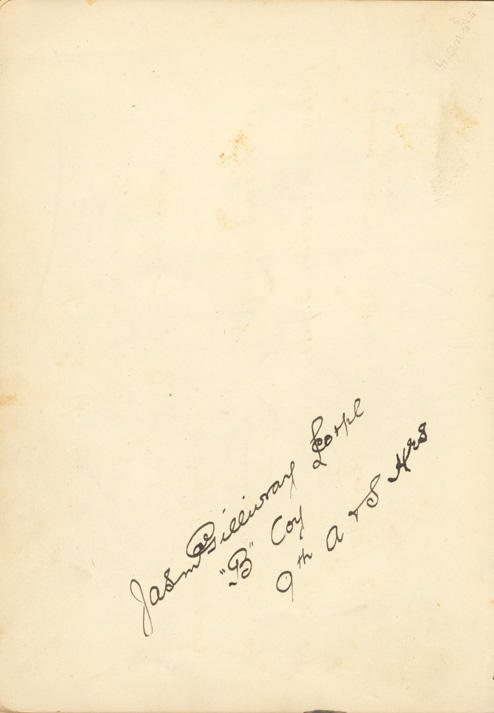 Jas McGillivray L/Corpl
"B" Coy
9th A & S Hrs